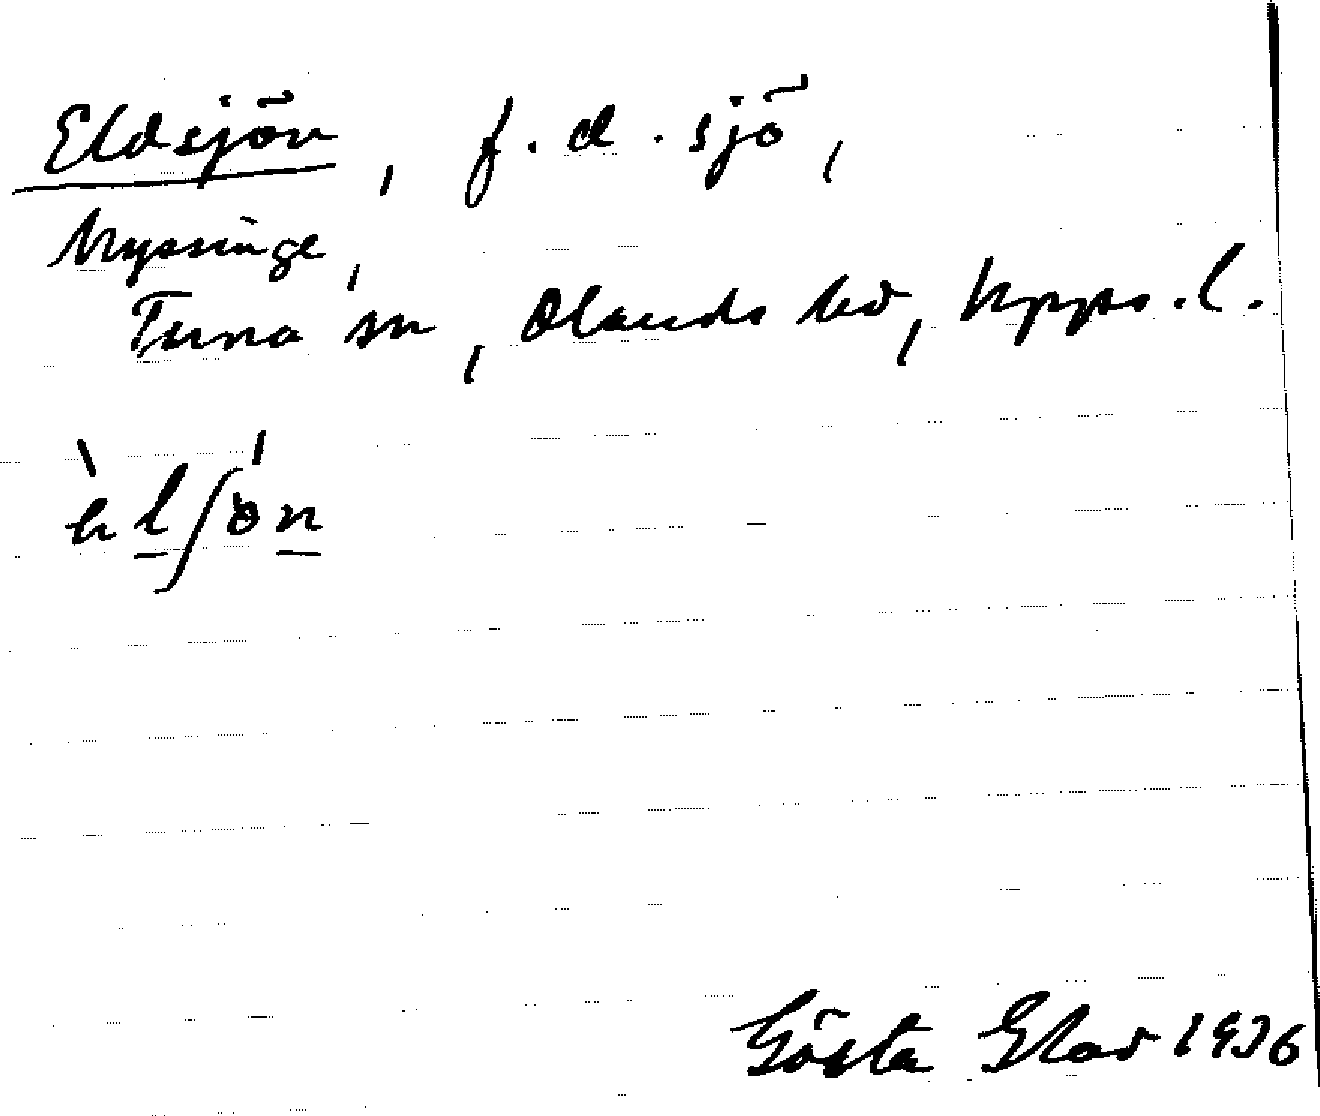 Eldsjön, f.d. sjö,
Nyssinge,
Tuna sn, Olands hd, Upps. l.
Gösta Glad 1936